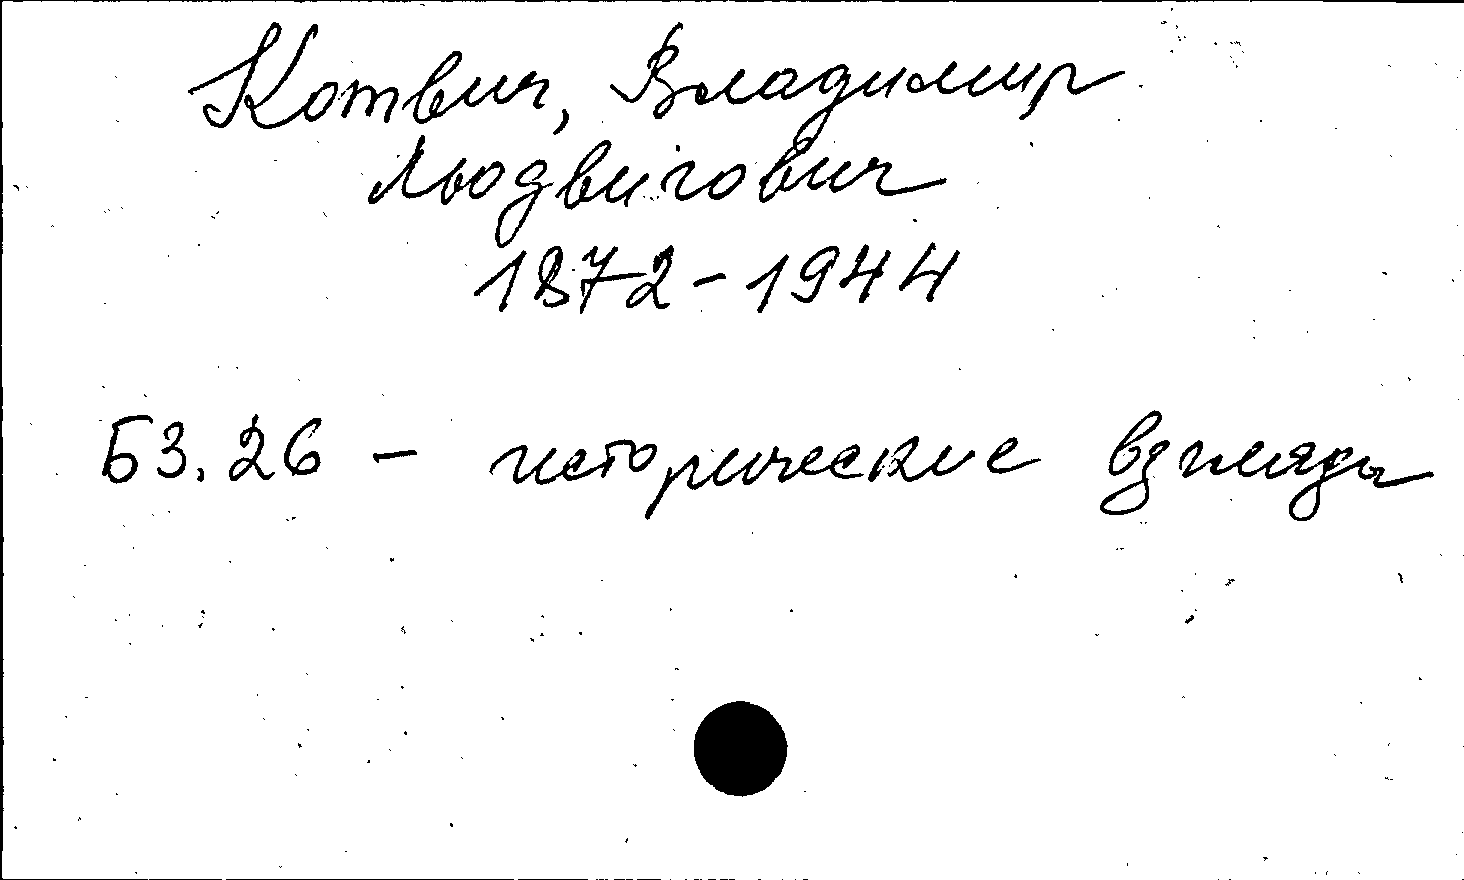 Котвич, Владимир
Людвигович
1872-1944
Б3.26 - исторические взгляды